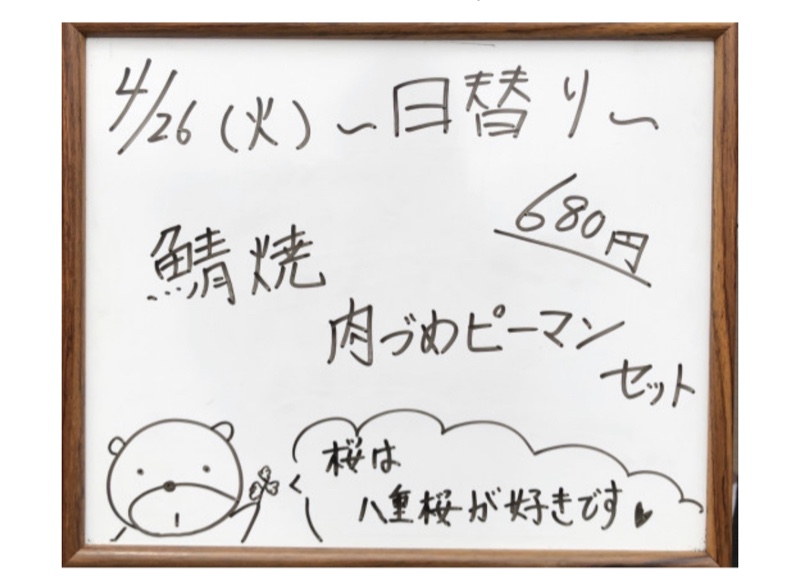 4/26(火)～日替り～
680円
鯖焼
肉づめピーマン
セット
桜は
八重桜が好きです♥